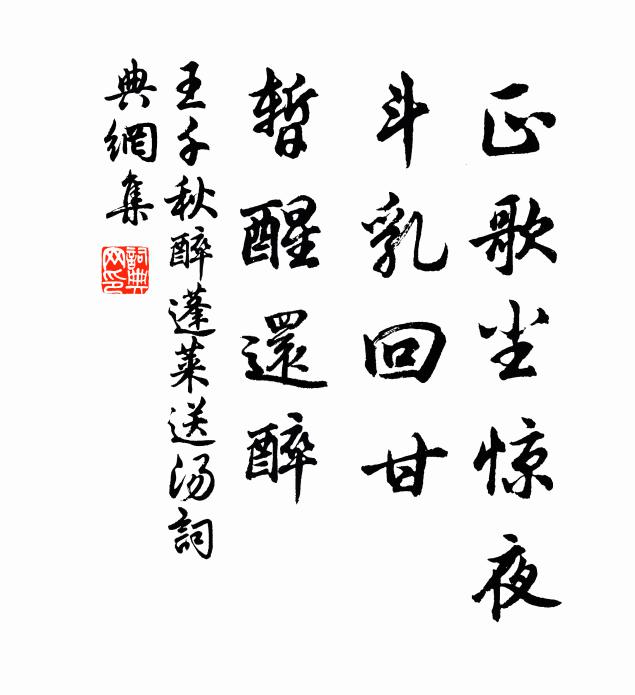 正歌尘惊夜
斗乳回甘
暂醒還醉
王千秋醉蓬莱送汤詞
典網集
詞典
网印